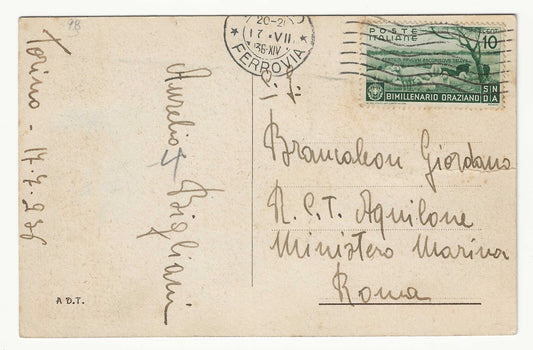 9B
Torino - 17.7.936
Aurelio Bigliani
A.D.T.
20-21
17 · VII
36·XIV
FERROVIA
POSTE
ITALIANE
CENT
10
BIMILLENARIO ORAZIANO
S N
D A
Brancaleon Giordano
R. C. T. Aquilone
Ministero Marina
Roma